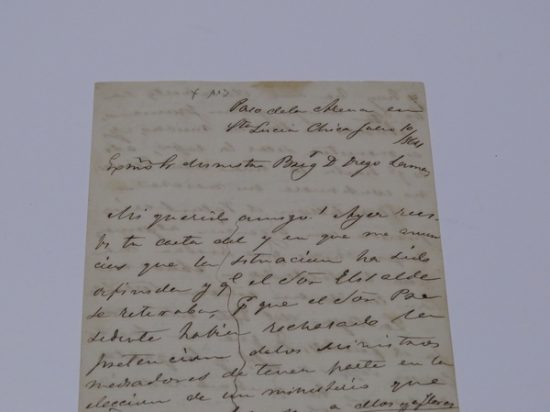 Paso de la Arena en
Sta Lucia Chica Julio 10/864
Exmo Sr Ministro Brigr D. Diego Lamas
Mi querido amigo! Ayer reci-
bi tu carta del 7 en que me anun-
cias que la situacion ha sido
definida y q e el Sor Elisalde
se retiraba, q e el Sor Pre
sidente habia rechazado la
pretencion de los Ministros
mediadores de tener parte en la
eleccion de un ministerio que